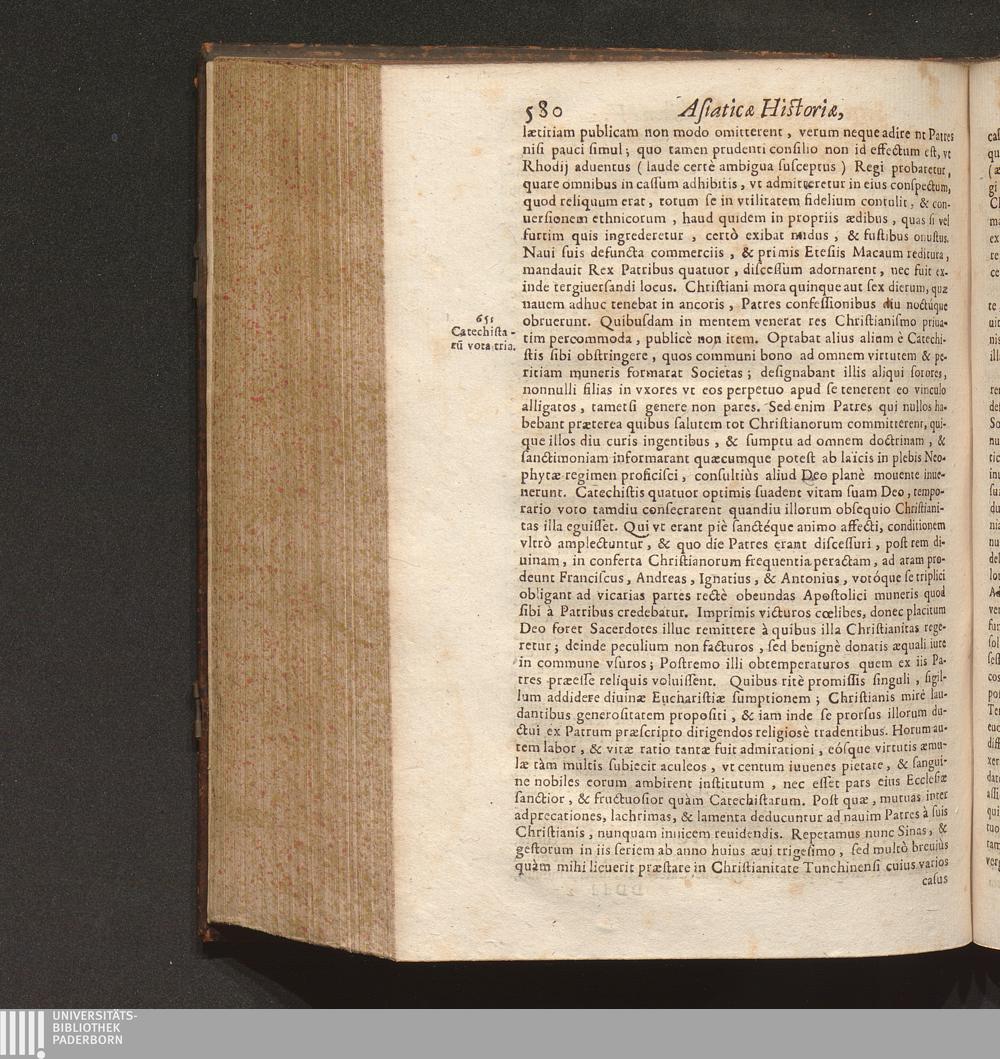 580 Asiaticæ Historiæ,
lætitiam publicam non modo omitterent, verum neque adire nt Patres
nisi pauci simul; quo tamen prudenti consilio non id effectum est, vt
Rhodij aduentus (laude certè ambigua susceptus) Regi probaretur,
quare omnibus in cassum adhibitis, vt admitteretur in eius conspectum,
quod reliquum erat, totum se in vtilitatem fidelium contulit, & con-
uersionem ethnicorum, haud quidem in propriis ædibus, quas si vel
furtim quis ingrederetur, certò exibat nudus, & fustibus onustus.
Naui suis defuncta commerciis, & primis Etesiis Macaum reditura,
mandauit Rex Patribus quatuor, discessum adornarent, nec fuit ex-
inde tergiuersandi locus. Christiani mora quinque aut sex dierum, quæ
nauem adhuc tenebat in ancoris, Patres confessionibus diu noctúque
obruerunt. Quibusdam in mentem venerat res Christianismo priua-
651
Catechista-
rū vota tria.
tim percommoda, publicè non item. Optabat alius alium è Catechi-
stis sibi obstringere, quos communi bono ad omnem virtutem & pe-
ritiam muneris formarat Societas; designabant illis aliqui sorores,
nonnulli filias in vxores vt eos perpetuo apud se tenerent eo vinculo
alligatos, tametsi genere non pares. Sed enim Patres qui nullos ha-
bebant præterea quibus salutem tot Christianorum committerent, qui-
que illos diu curis ingentibus, & sumptu ad omnem doctrinam, &
sanctimoniam informarant quæcumque potest ab laïcis in plebis Neo-
phytæ regimen proficisci, consultiùs aliud Deo planè mouente inue-
nerunt. Catechistis quatuor optimis suadent vitam suam Deo, tempo-
rario voto tamdiu consecrarent quandiu illorum obsequio Christiani-
tas illa eguisset. Qui vt erant piè sanctéque animo affecti, conditionem
vltrò amplectuntur, & quo die Patres erant discessuri, post rem di-
uinam, in conferta Christianorum frequentia peractam, ad aram pro-
deunt Franciscus, Andreas, Ignatius, & Antonius, votóque se triplici
obligant ad vicarias partes rectè obeundas Apostolici muneris quod
sibi à Patribus credebatur. Imprimis victuros cœlibes, donec placitum
Deo foret Sacerdotes illuc remittere à quibus illa Christianitas rege-
retur; deinde peculium non facturos, sed benignè donatis æquali iure
in commune vsuros; Postremo illi obtemperaturos quem ex iis Pa-
tres præesse reliquis voluissent. Quibus ritè promissis singuli, sigil-
lum addidere diuinæ Eucharistiæ sumptionem; Christianis mirè lau-
dantibus generositatem propositi, & iam inde se prorsus illorum du-
ctui ex Patrum præscripto dirigendos religiosè tradentibus. Horum au-
tem labor, & vitæ ratio tantæ fuit admirationi, eósque virtutis æmu-
læ tàm multis subiecit aculeos, vt centum iuuenes pietate, & sangui-
ne nobiles eorum ambirent institutum, nec esset pars eius Ecclesiæ
sanctior, & fructuosior quàm Catechistarum. Post quæ, mutuas inter
adprecationes, lachrimas, & lamenta deducuntur ad nauim Patres à suis
Christianis, nunquam inuicem reuidendis. Repetamus nunc Sinas, &
gestorum in iis seriem ab anno huius æui trigesimo, sed multò breuiùs
quàm mihi licuerit præstare in Christianitate Tunchinensi cuius varios
casus
UNIVERSITÄTS-
BIBLIOTHEK
PADERBORN